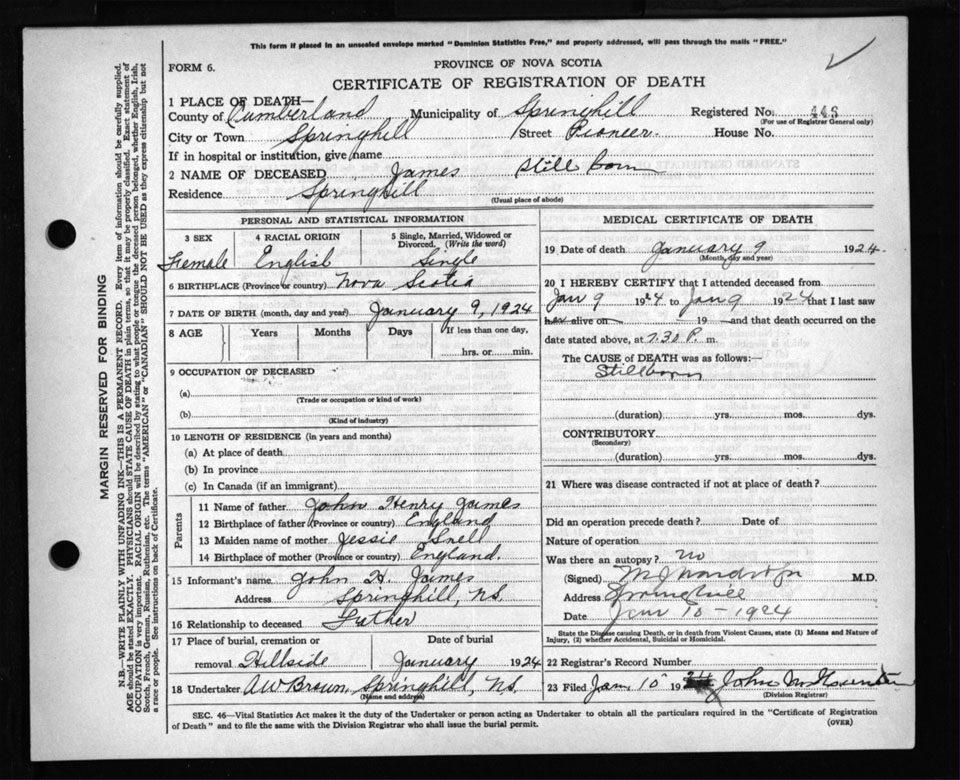 This form if placed in an unsealed envelope marked "Dominion Statistics Free," and properly addressed, will pass through the mails "FREE."
FORM 6.
PROVINCE OF NOVA SCOTIA
CERTIFICATE OF REGISTRATION OF DEATH
1 PLACE OF DEATH—
County of Cumberland Municipality of Springhill Registered No. 448
(For use of Registrar General only)
City or Town Springhill Street Pioneer House No.
If in hospital or institution, give name
2 NAME OF DECEASED James Still born
Residence Springhill
(Usual place of abode)
PERSONAL AND STATISTICAL INFORMATION
3 SEX 4 RACIAL ORIGIN 5 Single, Married, Widowed or Divorced. (Write the word)
Female English Single
6 BIRTHPLACE (Province or country) Nova Scotia
7 DATE OF BIRTH (month, day and year) January 9, 1924
8 AGE Years Months Days If less than one day,
hrs. or min.
9 OCCUPATION OF DECEASED
(a)
(Trade or occupation or kind of work)
(b)
(Kind of industry)
10 LENGTH OF RESIDENCE (in years and months)
(a) At place of death
(b) In province
(c) In Canada (if an immigrant)
Parents
11 Name of father John Henry James
12 Birthplace of father (Province or country) England
13 Maiden name of mother Jessie Snell
14 Birthplace of mother (Province or country) England.
15 Informant's name John H. James
Address Springhill, N.S.
16 Relationship to deceased Father
17 Place of burial, cremation or Date of burial
removal Hillside January 1924
18 Undertaker A W Brown, Springhill, N.S.
(Name and address)
MEDICAL CERTIFICATE OF DEATH
19 Date of death January 9 1924.
(Month, day and year)
20 I HEREBY CERTIFY that I attended deceased from
Jan 9 1924 to Jan 9 1924 that I last saw
alive on 19 —and that death occurred on the
date stated above, at 7.30 P. m.
The CAUSE of DEATH was as follows:—
Stillborn
(duration) yrs. mos. dys.
CONTRIBUTORY
(Secondary)
(duration) yrs. mos. dys.
21 Where was disease contracted if not at place of death?
Did an operation precede death? Date of
Nature of operation
Was there an autopsy? no
(Signed) M.D.
Address Springhill
Date Jan 10 - 1924
State the Disease causing Death, or in death from Violent Causes, state (1) Means and Nature of Injury, (2) whether Accidental, Suicidal or Homicidal.
22 Registrar's Record Number
23 Filed Jan 10 1924 John
(Division Registrar)
SEC. 46—Vital Statistics Act makes it the duty of the Undertaker or person acting as Undertaker to obtain all the particulars required in the "Certificate of Registration
of Death" and to file the same with the Division Registrar who shall issue the burial permit.
(OVER)
MARGIN RESERVED FOR BINDING
N.B.—WRITE PLAINLY WITH UNFADING INK—THIS IS A PERMANENT RECORD. Every item of information should be carefully supplied.
AGE should be stated EXACTLY. PHYSICIANS should STATE CAUSE OF DEATH in plain terms, so that it may be properly classified. Exact statement of
OCCUPATION is very important. RACIAL ORIGIN will be described by stating to what people or tongue the deceased person belonged, whether English, Irish,
Scotch, French, German, Russian, Ruthenian, etc. The terms "AMERICAN" or "CANADIAN" SHOULD NOT BE USED as they express citizenship but not
a race or people. See instructions on back of Certificate.